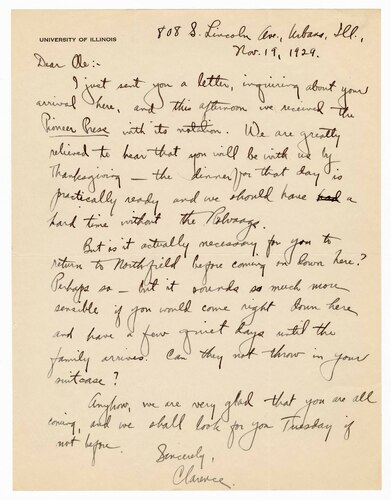 UNIVERSITY OF ILLINOIS
808 S. Lincoln Ave., Urbana, Ill.,
Nov. 19, 1929.
Dear Ole:-
I just sent you a letter, inquiring about your
arrival here, and this afternoon we received the
Pioneer Press with its notation. We are greatly
relieved to hear that you will be with us by
Thanksgiving — the dinner for that day is
practically ready and we should have had a
hard time without the Rolvaags.
But is it actually necessary for you to
return to Northfield before coming on down here?
Perhaps so — but it sounds so much more
sensible if you would come right down here
and have a few quiet days until the
family arrives. Can they not throw in your
suitcase?
Anyhow, we are very glad that you are all
coming, and we shall look for you Tuesday if
not before.
Sincerely,
Clarence.